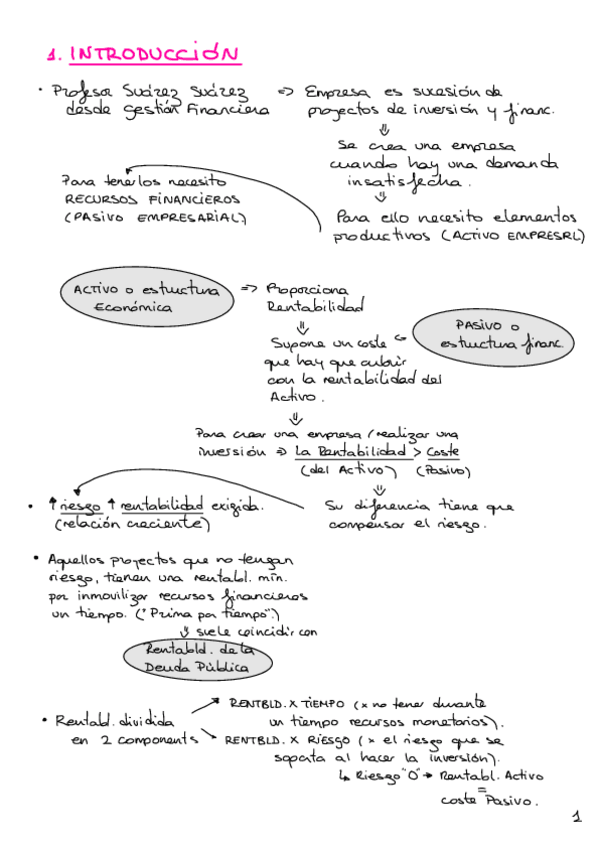 1. INTRODUCCIÓN
· Profesor Suárez Suárez => Empresa es sucesión de
desde gestión Financiera proyectos de inversión y financ.
⇓
Se crea una empresa
cuando hay una demanda
insatisfecha.
⇓
Para tenerlos necesito
RECURSOS FINANCIEROS
(PASIVO EMPRESARIAL)
Para ello necesito elementos
productivos (ACTIVO EMPRESRL)
ACTIVO o estructura
Económica
=> Proporciona
Rentabilidad
⇓
PASIVO o
estructura financ.
Supone un coste
que hay que cubrir
con la rentabilidad del
Activo.
⇓
Para crear una empresa/realizar una
inversión => La Rentabilidad > Coste
(del Activo) (Pasivo)
⇓
Su diferencia tiene que
compensar el riesgo.
· ↑ riesgo ↑ rentabilidad exigida.
(relación creciente)
· Aquellos proyectos que no tengan
riesgo, tienen una rentabl. mín.
por inmovilizar recursos financieros
un tiempo. ("Prima por tiempo")
⇓ suele coincidir con
Rentabld. de la
Deuda Pública
· Rentabl. dividida
en 2 components
RENTBLD. X TIEMPO (x no tener durante
un tiempo recursos monetarios).
RENTBLD. X RIESGO (x el riesgo que se
soporta al hacer la inversión).
↳ Riesgo "0" → Rentabl. Activo
=
coste Pasivo.
1